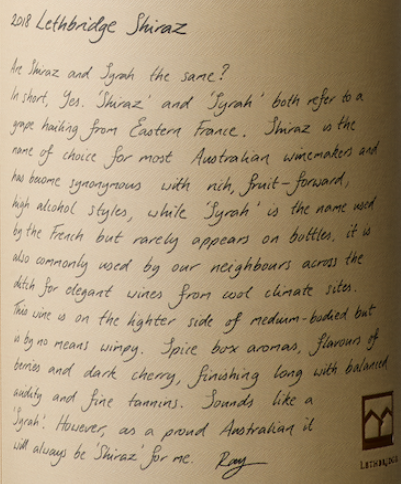 2018 Lethbridge Shiraz
Are Shiraz and Syrah the same?
In short, Yes. 'Shiraz' and 'Syrah' both refer to a
grape hailing from Eastern France. Shiraz is the
name of choice for most Australian winemakers and
has become synonymous with rich, fruit-forward,
high alcohol styles, while 'Syrah' is the name used
by the French but rarely appears on bottles, it is
also commonly used by our neighbours across the
ditch for elegant wines from cool climate sites.
This wine is on the lighter side of medium-bodied but
is by no means wimpy. Spice box aromas, flavours of
berries and dark cherry, finishing long with balanced
acidity and fine tannins. Sounds like a
'Syrah'. However, as a proud Australian it
will always be 'Shiraz' for me. Ray
LETHBRIDGE